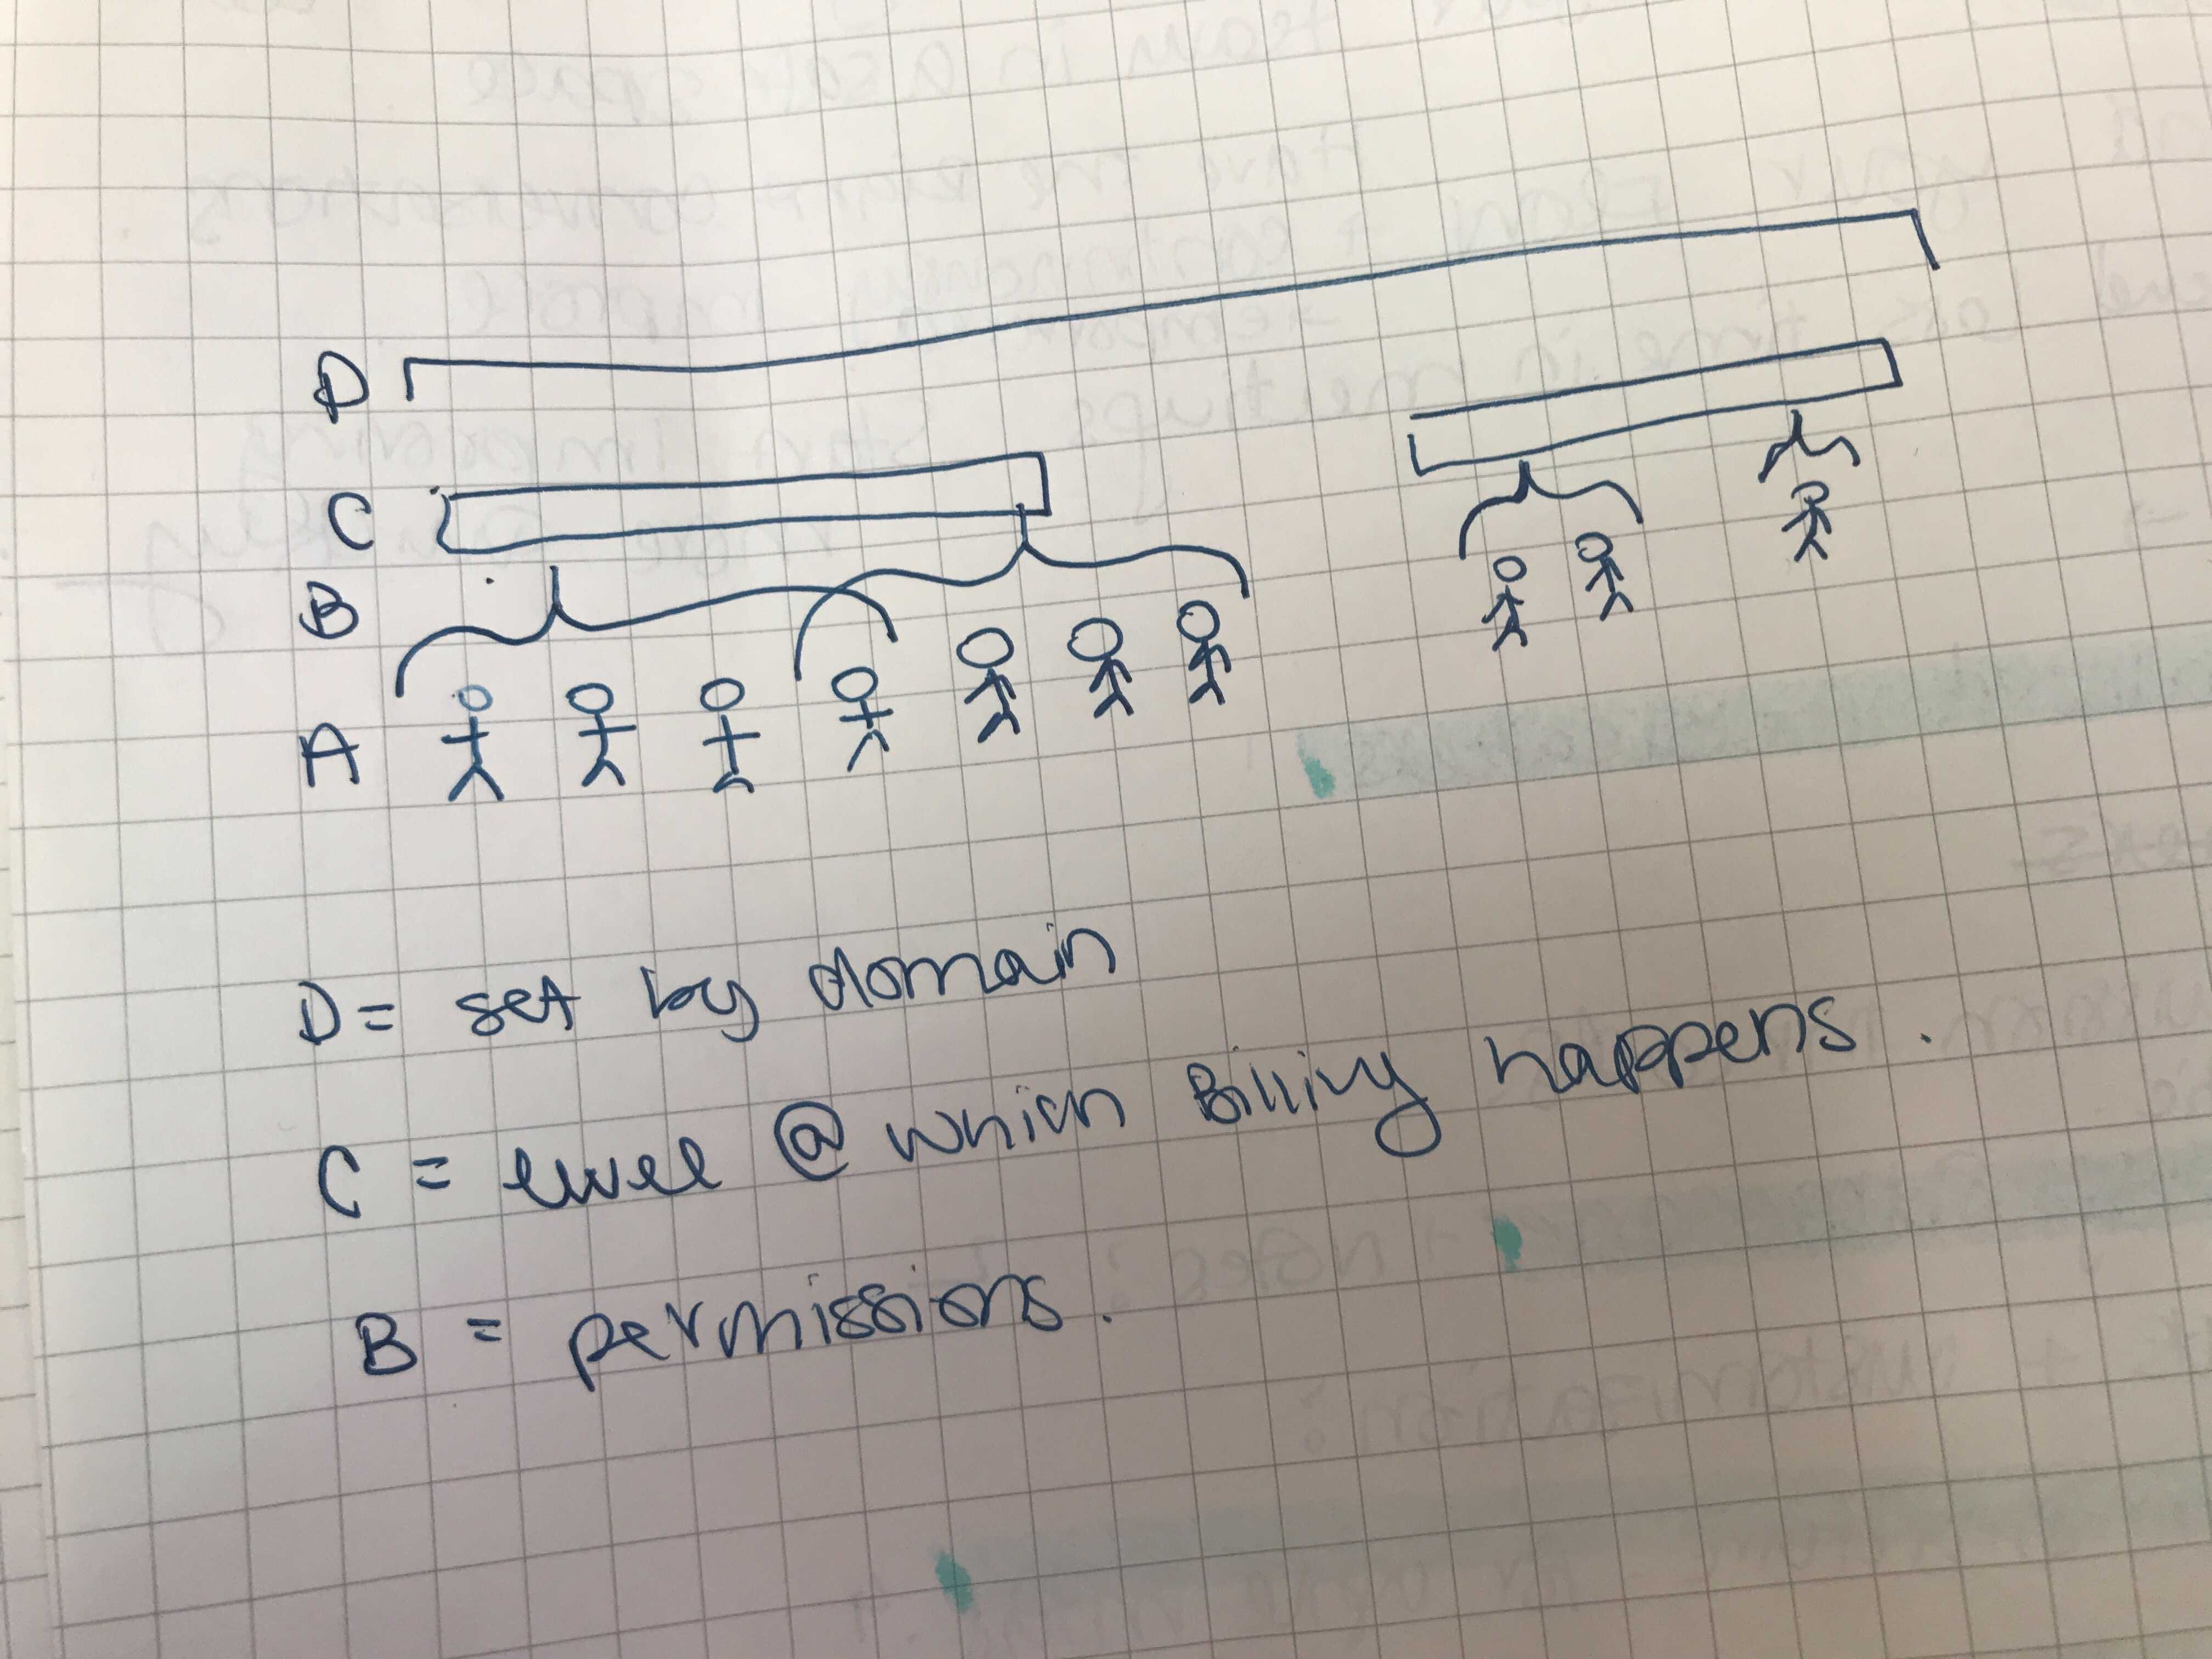 D
C
B
A
D = set by domain
C = level @ which Billing happens.
B = permissions.